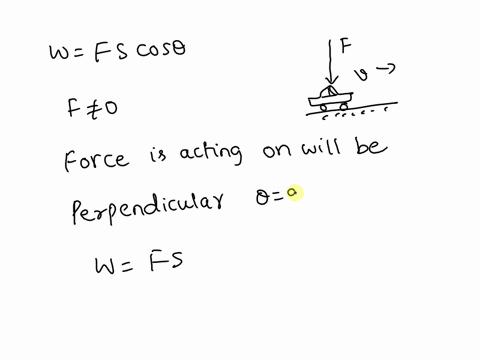 W = FS cosθ
F
v →
F ≠ 0
Force is acting on will be
Perpendicular θ =
W = FS